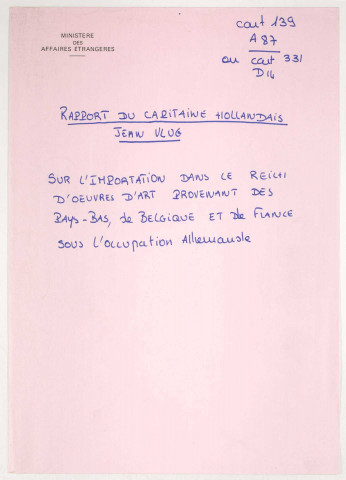 MINISTÈRE
DES
AFFAIRES ÉTRANGÈRES
cart 139
A 87
ou cart 331
D14
RAPPORT DU CAPITAINE HOLLANDAIS
JEAN VLUG
SUR L'IMPORTATION DANS LE REICH
D'OEUVRES D'ART PROVENANT DES
PAYS-BAS, de BELGIQUE ET de FRANCE
SOUS L'OCCUPATION Allemande